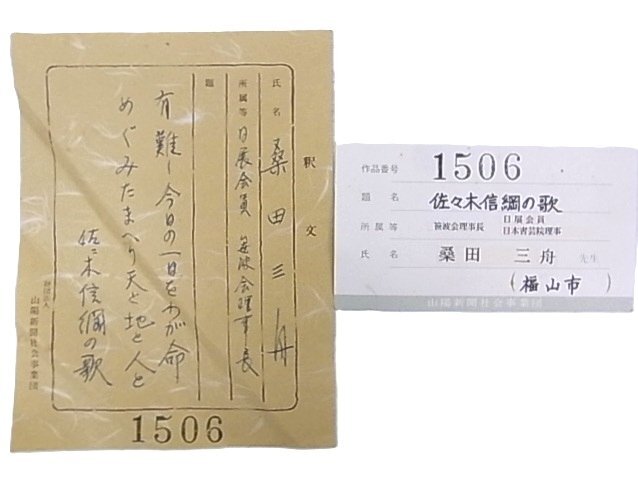 釈文
氏名 桑田三舟
所属等 日展会員 笹波会理事長
題
有難し今日の一日もわが命
めぐみたまへり天と地と人と
佐々木信綱の歌
財団法人
山陽新聞社会事業団
1506
作品番号 1506
題名 佐々木信綱の歌
所属等 笹波会理事長 日展会員
日本書芸院理事
氏名 桑田 三舟 先生
(福山市)
山陽新聞社会事業団